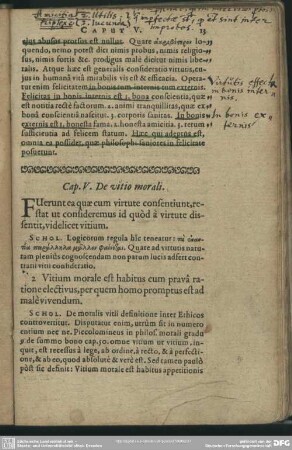 Amicitia 2 Utilis.
Triplex 3. Jucunda
CAPUT V. 13
ejus abusus prorsus est nullus. Quare
quendo, nemo potest dici nimis probus, nimis religio-
sus, nimis fortis &c. prodigus malè dicitur nimis libe-
ralis. Atque hæc est generalis consideratio virtutis,
jus in humanâ vitâ mirabilis vis est & efficacia. Opera-
tur enim felicitatem in bonis tum internis tum externis.
Felicitas in bonis internis est 1. bona conscientia, quæ
est nostra rectè factorum. 2. animi tranquillitas, quæ ex
bonâ conscientiâ nascitur. 3. corporis sanitas. In bonis
externis est 1. honesta fama. 2. honesta amicitia. 3. rerum
sufficientia ad felicem statum. Hæc qui adeptus est,
omnia ea possidet, quæ philosophi saniores in felicitate
posuerunt.
Virtutis effecta
in bonis inter-
nis.
In bonis ex
ternis
Cap. V. De vitio morali.
FUerunt ea quæ cum virtute consentiunt, re-
stat ut consideremus id quòd â virtute dis-
sentit, videlicet vitium.
SCHOL. Logicorum regula hîc teneatur: τὰ ἐναντία
παράλληλα μᾶλλον φαίνεται. Quare ad virtutis natu-
ram pleniùs cognoscendam non parum lucis adfert con-
trarii vitii consideratio.
2 Vitium morale est habitus cum pravâ ra-
tione electivus, per quem homo promptus est ad
malè vivendum.
SCHOL. De moralis vitii definitione inter Ethicos
controvertitur. Disputant enim, utrùm sit in numero
entium nec ne. Piccolomineus in philos. morali gradu
9 de summo bono cap. 30. omne vitium ut vitium, in-
quit, est recessus à lege, ab ordine, à recto, & à perfectio-
ne, & ab eo, quod absolutè & verè est. Sed tamen paulò
pòst sic definit: Vitium morale est habitus appetitionis